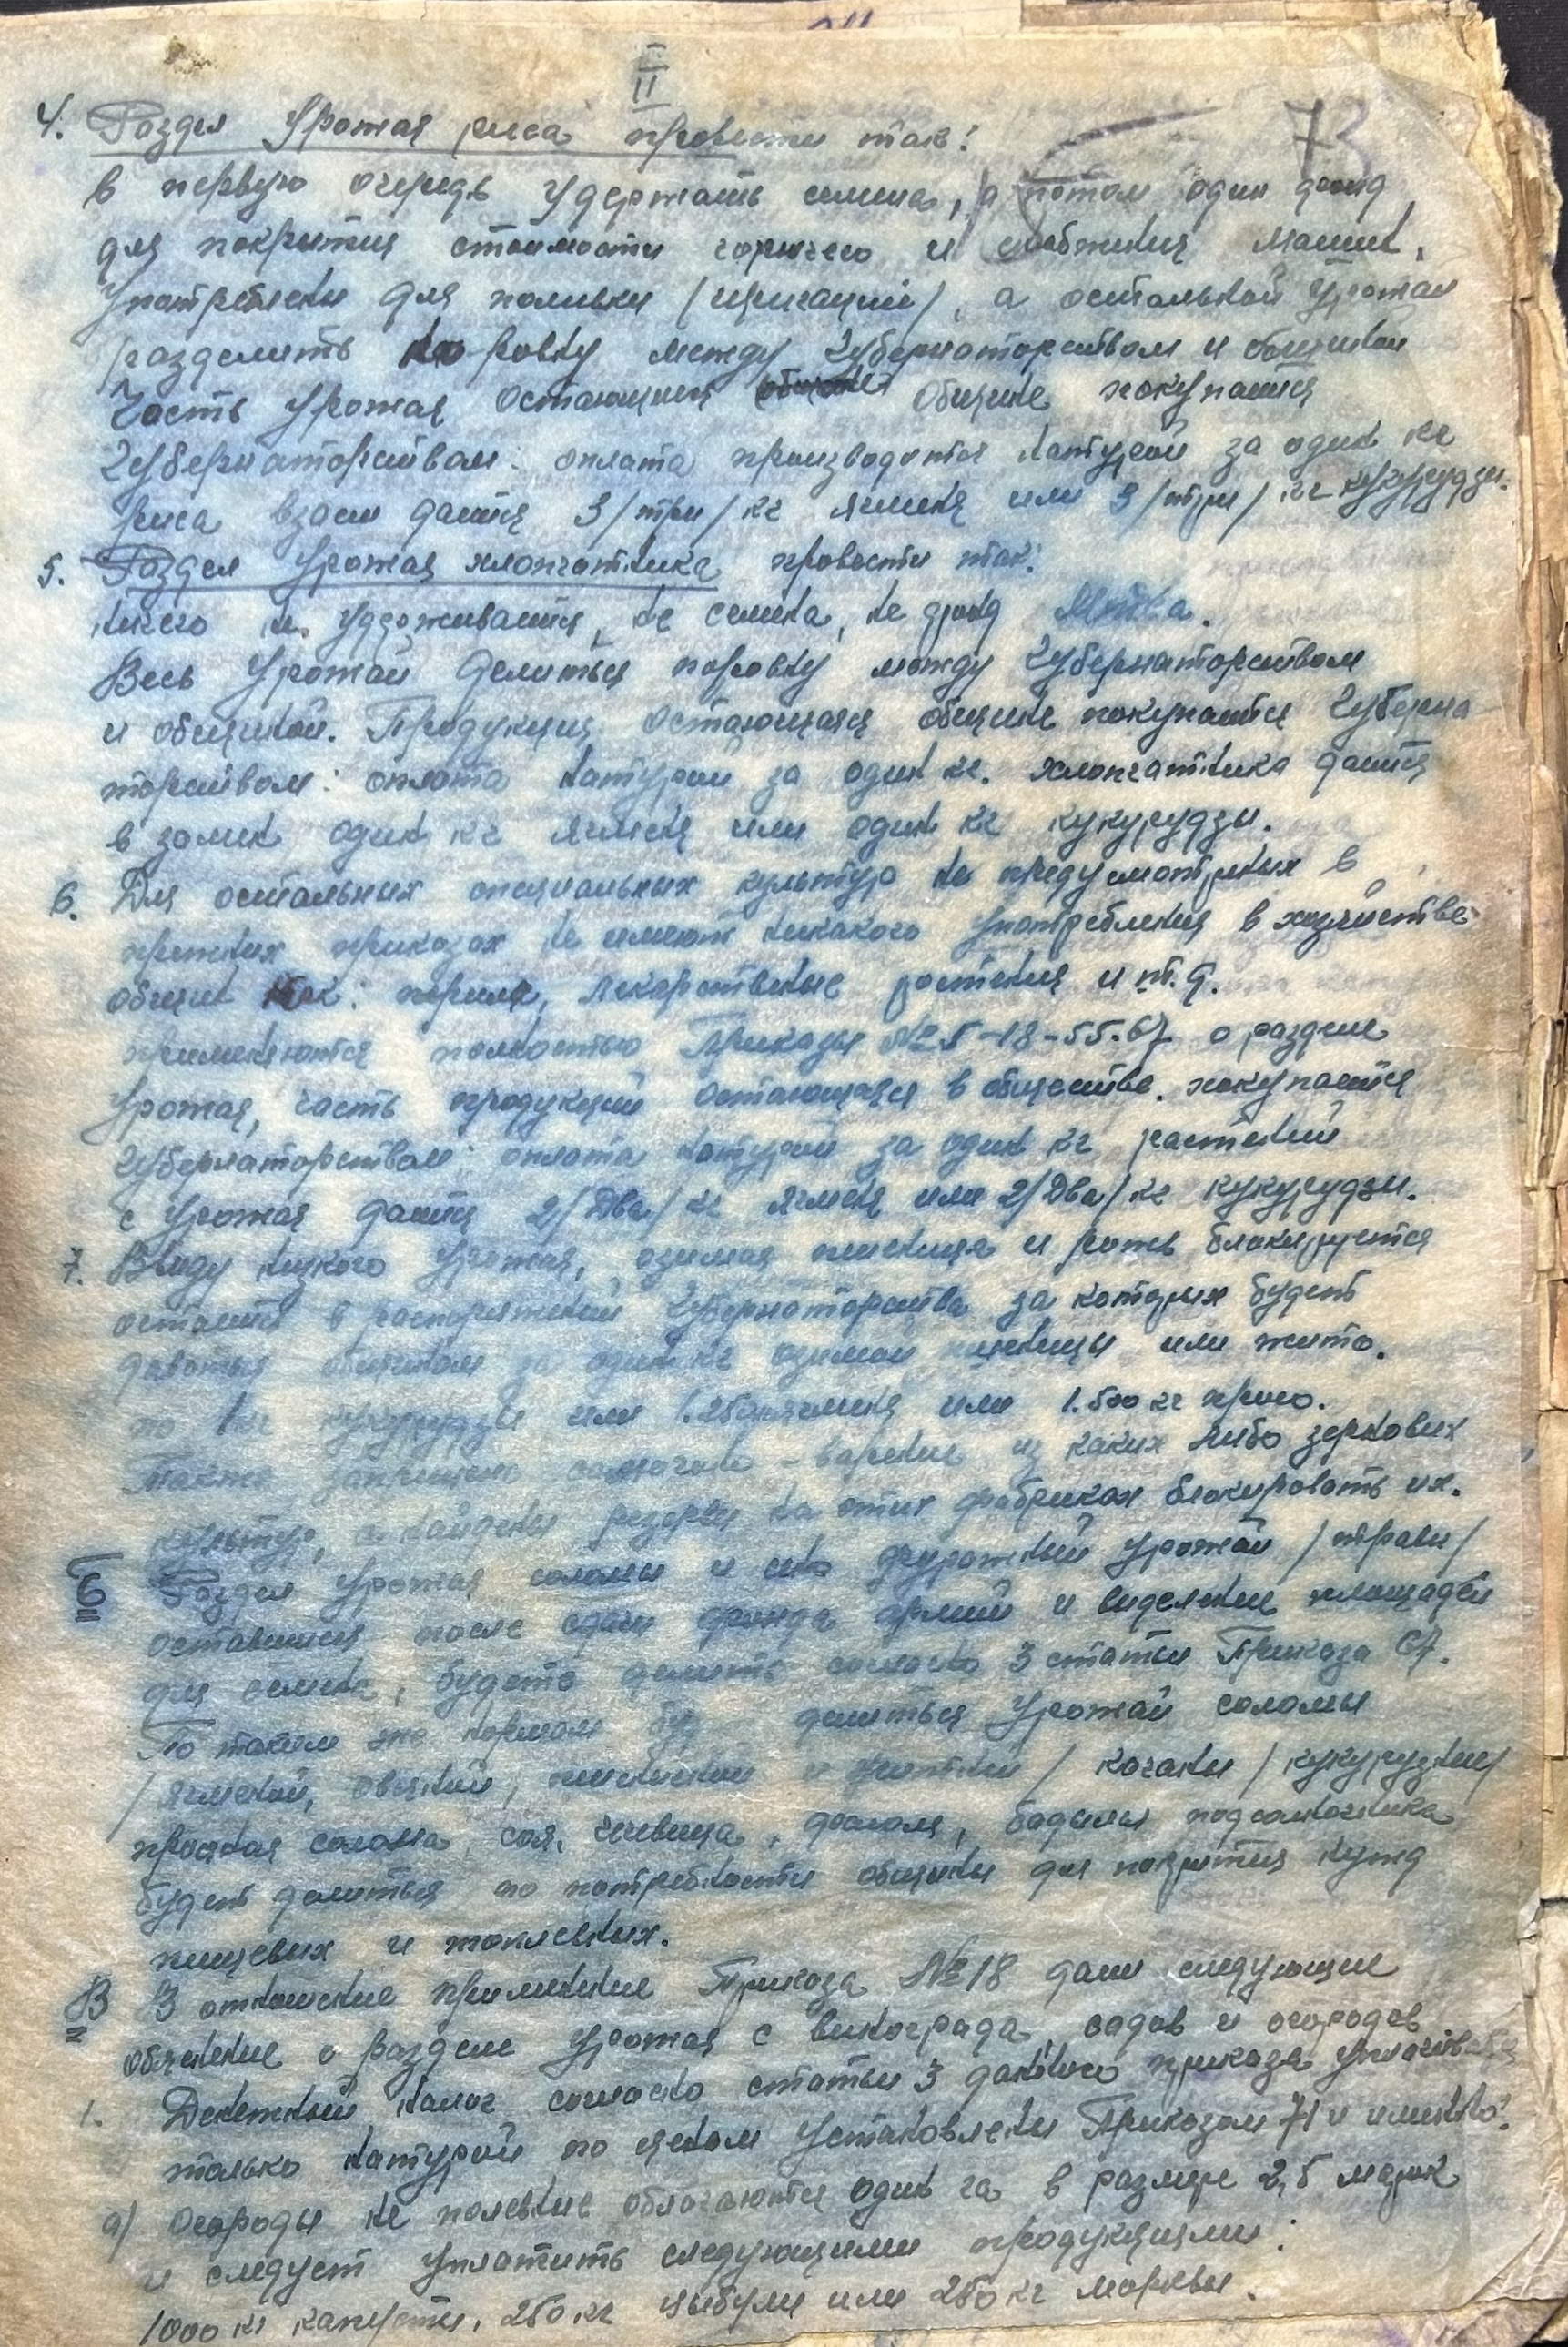 II
73
4. Раздел Урожая риса провести так:
в первую очередь удержать семена, а потом один фонд
для покрытия стоимости горючего и снабжения машин,
употреблены для поливки /иригаций/, а остальной Урожай
разделить по ровну между Губернаторством и общиной
Часть Урожая остающийся общине покупается
Губернаторством: оплата производится натурой за один кг
риса взаем дается 3/три/кг ячменя или 3/три/ кг кукурудзы.
5. Раздел Урожая хлопчатника провести так:
ничего не удерживается, не семена, не фонд
Весь Урожай делиться поровну между Губернаторством
и общиной. Продукция остающаяся общине покупается Губерна
торством: оплата натурой за один кг. хлопчатника дается
в замен один кг ячменя или один кг кукурудзы.
6. Для остальных специальных культур не предусмотреных в
прежних приказах не имеют никакого употребления в хозяйстве
общин как: перила, лекарственые ростения и т.д.
применяются полностью Приказы №5-18-55.67 о разделе
Урожая, часть продукций остающаяся в обществе. покупается
Губернаторством: оплата натурой за один кг растений
с Урожая дается 2/Два/ кг ячменя или 2/Два/кг кукурудзы.
7. Ввиду низкого Урожая, озимая пшеница и рожь блокируется
остается в распоряжений Губернаторства за которых будет
даваться общинам за один кг озимой пшеницы или жито.
по 1 кг кукурудзы или ячменя или 1.500 кг просо.
Также запрещено самогоно - варение из каких либо зерновых
культур, а найдены резервы на этих фабриках блокировать их.
Б Раздел Урожая соломы и сено фуражный Урожай /травы/
оставшийся после сдачи фонда армий и виделение площадей
для семена, будете делить согласно 3 статьи Приказа 67.
По таким же нормам буд делиться Урожай соломы
/ячменой, овсяной, пшеничной и / качаны /кукурузные/
просяная солома, соя, чечевица, фасоля, бадылья подсолнечника
будет делиться по потребности общины для покрытия нужд
пищевых и топлевных.
В З отношение применение Приказа №18 даем следующие
обяснение о разделе Урожая с винограда, садов и огородов
1. Денежный налог согласно статьи 3 даного приказа уплачивается
только натурой по ценам установлены Приказом 71 и именно:
а) Огороды не полевые облагаются один га в размере 2,5 марок
и следует уплатить следующими продукциями:
1000 кг капусты, 250 кг цыбули или 250 кг морквы.